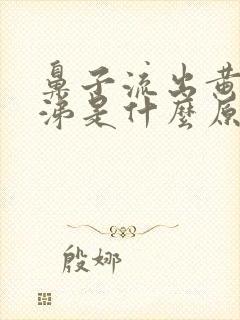 鼻子流出黄
涕是什麼原
殷娜